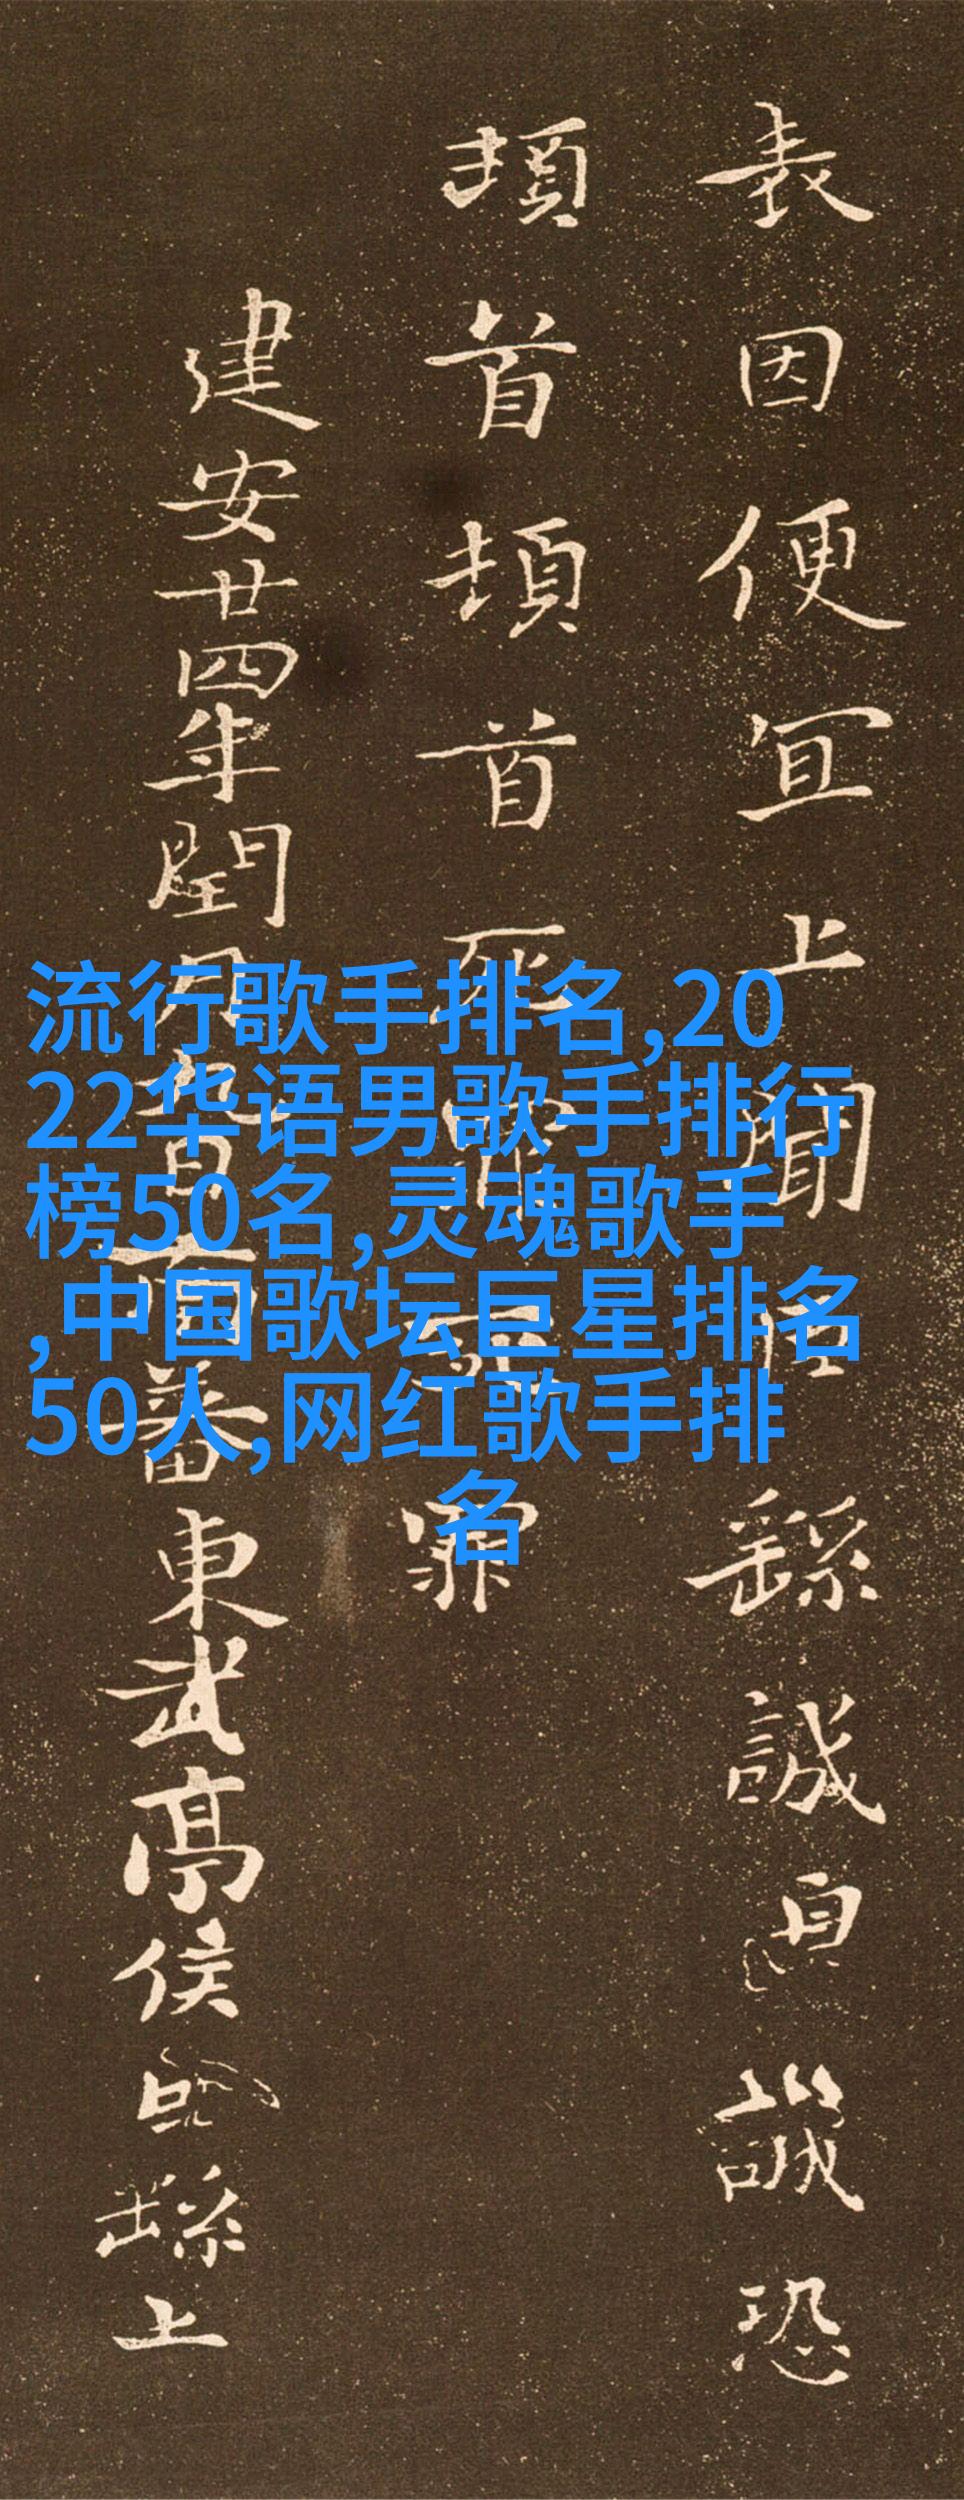 表因便宜上聞臣繇誠誠恐
頓首頓首死罪死罪
建安廿四年閏月九日南蕃東武亭侯臣繇上
流行歌手排名,20
22华语男歌手排行
榜50名,灵魂歌手
,中国歌坛巨星排名
50人,网红歌手排
名